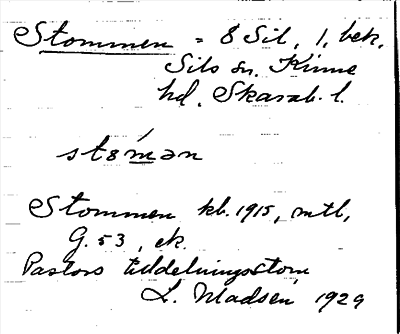 Stommen = 8 Sil, 1, bek.
Sils sn. Kinne
hd. Skarab. l.
stɵmən
Stommen kb. 1915, mtl,
G. 53, ek.
Pastors tilldelningsstom,
L. Madsen 1929